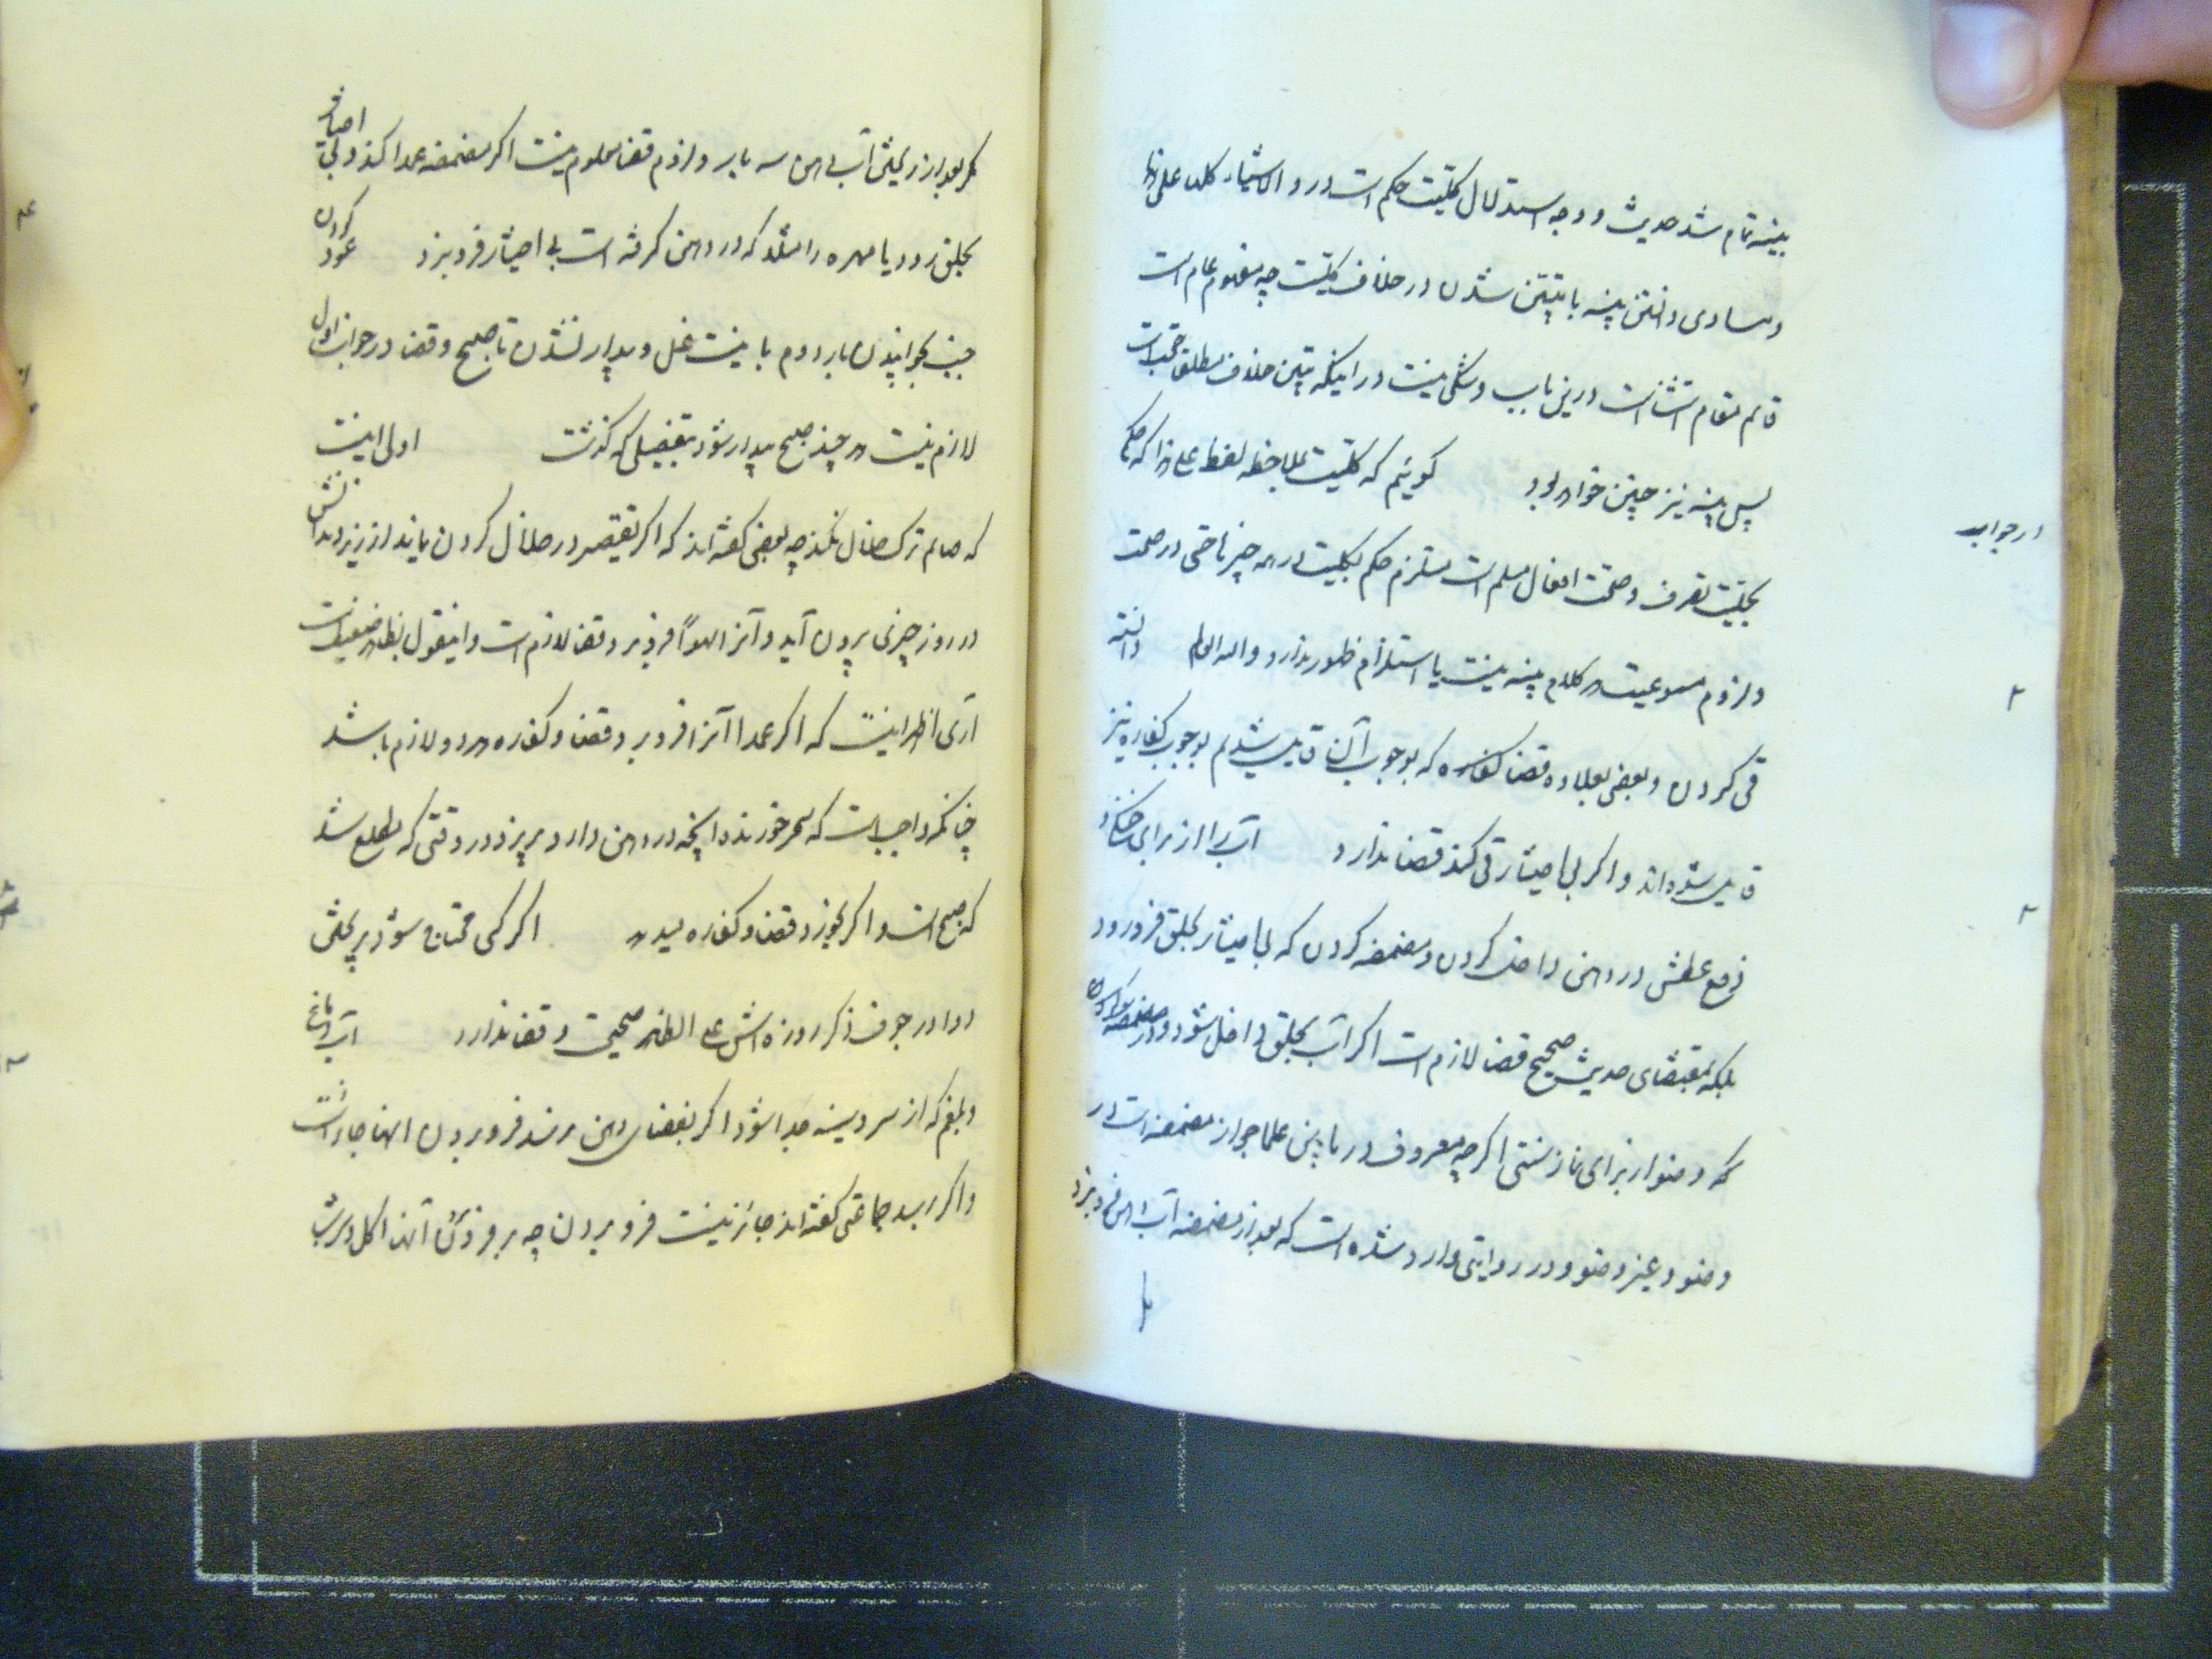 بینه تمام شد حدیث و وجه استدلال کلیت حکم است در و الاشیاء کلها علی هذا
و مساوی دانستن بینه با یتبین شدن در خلاف کلیت چه مفهوم عام است
قائم مقام استثناست درین باب و شکی نیست در اینکه یتبین خلاف مطلق حجت است
پس بینه نیز چنین خواهد بود گوئیم که کلیت بملاحظه لفظ علی هذا که حکم
در جواب
بحلیت تصرف و صحت افعال مسلم است مستلزم حکم بکلیت در همه چیز نا حتی در صحت
و لزوم مسموعیت هر کلام بینه نیست یا استلزام ظهور ندارد و الله العالم دانسته
۲
قی کردن و بعضی بعلاوه قضا کفاره که بوجوب آن قایل شدیم بوجوب کفاره نیز
قایل شده‌اند و اگر بی اختیار قی کند قضا ندارد آب را از برای خنکی و
۳
رفع عطش در دهن داخل کردن و مضمضه کردن که بی اختیار بحلق فرو رود
بلکه بمقتضای حدیث صحیح قضا لازم است اگر آب بحلق داخل شود در مضمضه
که وضو از برای نماز سنتی اگرچه معروف در ما بین علما جواز مضمضه است در
وضو و غیر وضو و در روایتی وارد شده است که بعد از مضمضه آب دهن فرو نبرد
مگر بعد از ریختن آب دهن سه بار و لزوم قضا معلوم نیست اگر مضمضه عمدا کند و بی اختیار
بحلق رود یا مهره را مثلا که در دهن گرفته است بی اختیار فرو برد عود کردن
جنب بخوابیدن بار دوم با نیت غسل و بیدار نشدن تا صبح و قضا در خواب اول
لازم نیست هر چند صبح بیدار شود بتفصیلی که گذشت اولی اینست
که صائم ترک خلال نکند چه بعضی گفته‌اند که اگر تقصیر در خلال کردن نماید از زیر دندانش
در روز چیزی بیرون آید و آنرا سهواً فرو برد قضا لازم است و اینقول بنظر ضعیف است
آری اظهر اینست که اگر عمدا آنرا فرو برد قضا و کفاره هر دو لازم باشد
چنانکه واجب است که سحر خورنده آنچه در دهن دارد بریزد در وقتی که مطلع شد
که صبح است و اگر بخورد قضا و کفاره میدهد اگر کسی محتاج شود بریختن
دوا در جوف ذکر روزه‌اش علی الظاهر صحیحست و قضا ندارد آب دماغ
و بلغم که از سر و سینه جدا شود اگر بفضای دهن نرسد فرو بردن آنها جایز است
و اگر رسد جماعتی گفته‌اند جائز نیست فرو بردن چه بر فرو بردن آنها اکل و شرب